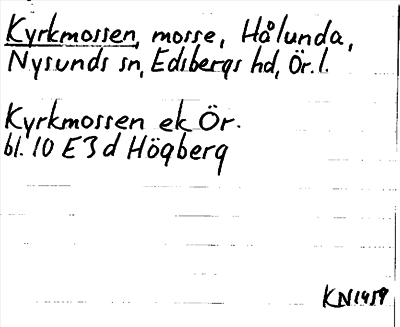 Kyrkmossen, mosse, Hålunda,
Nysunds sn, Edsbergs hd, Ör. l.
Kyrkmossen ek Ör.
bl. 10 E 3 d Högberg
KN 1959